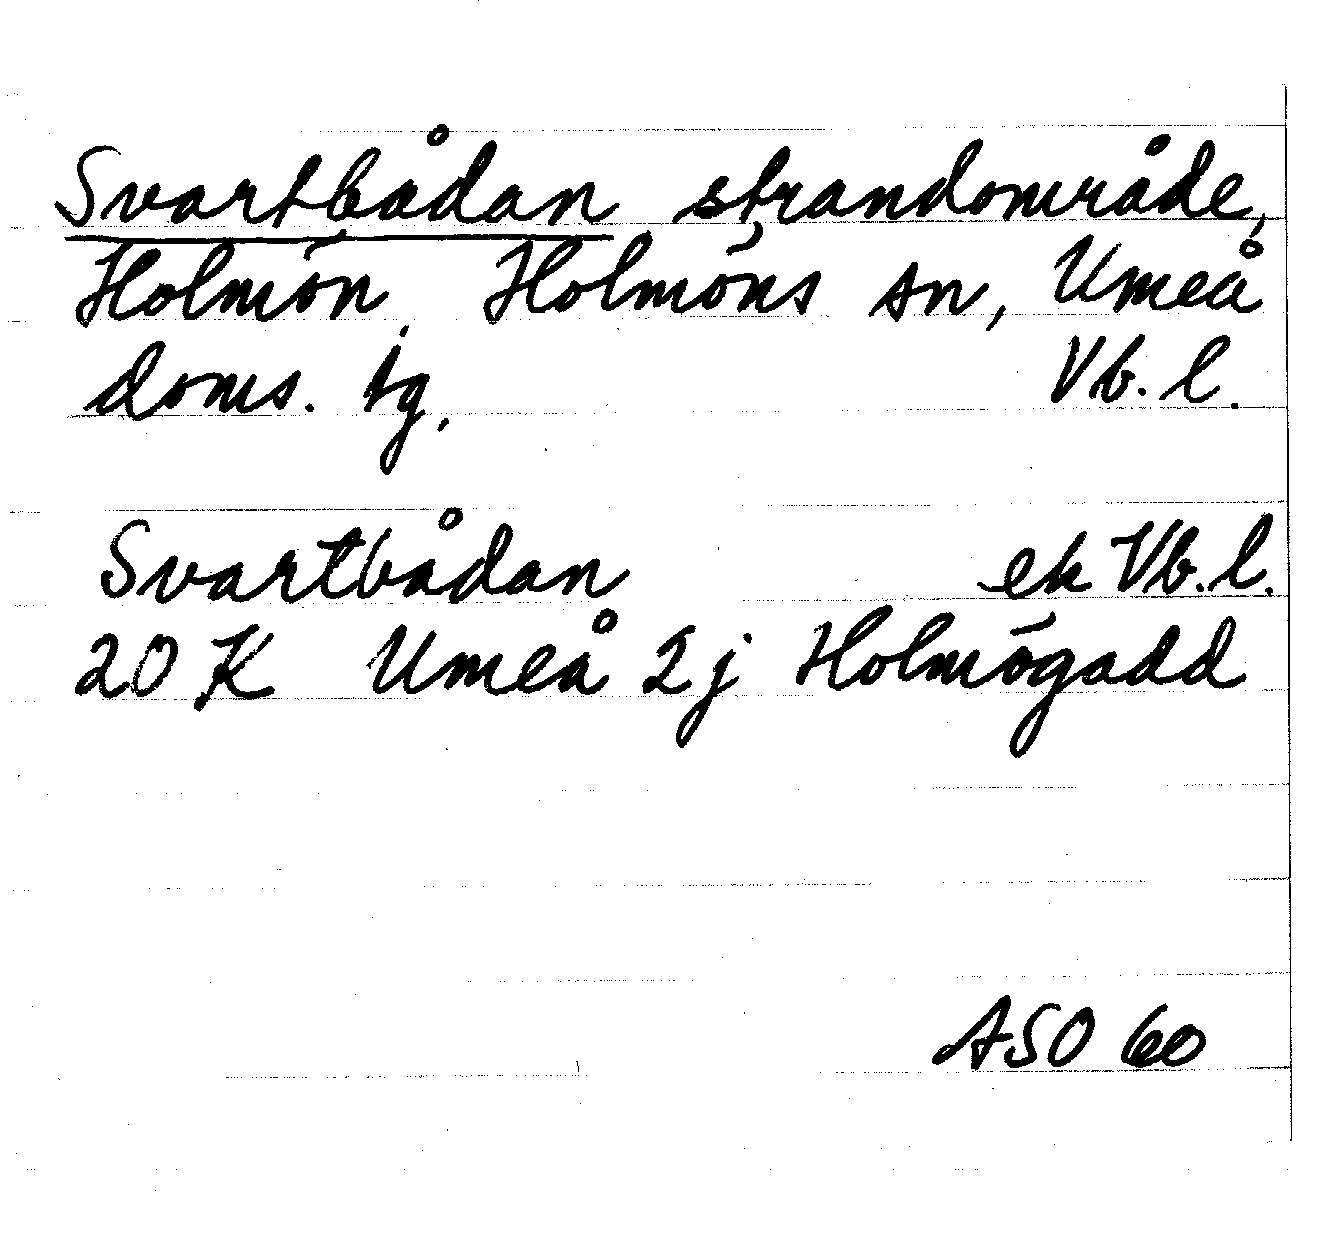 Svartbådan strandområde,
Holmön, Holmöns sn, Umeå
doms. tg. Vb. l.
Svartbådan ek Vb. l.
20 K Umeå 2j Holmögadd
ASO 60